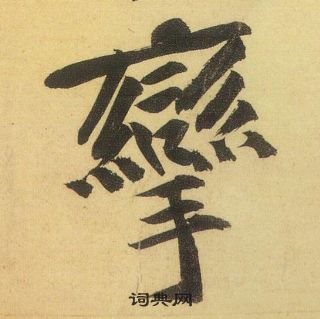 攣
词典网